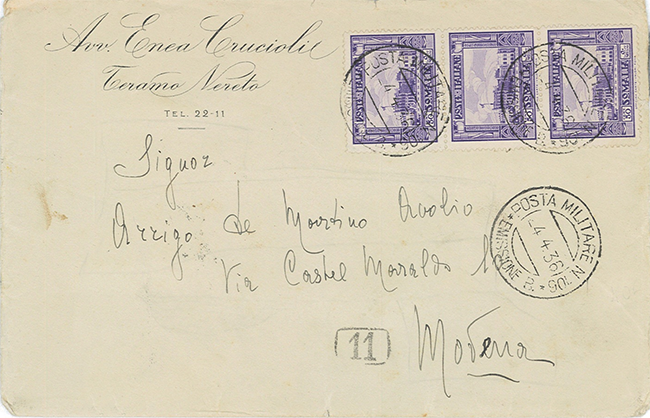 Avv. Enea Crucioli
Teramo Nereto
TEL. 22-11
POSTE ITALIANE
SOMALIA
POSTE ITALIANE
SOMALIA
POSTE ITALIANE
SOMALIA
POSTA MILITARE
POSTA MILI
Signor
Arrigo de Martino Avolio
Via Castel Maraldo
Modena
POSTA MILITARE N. 105
-4.4.36
11